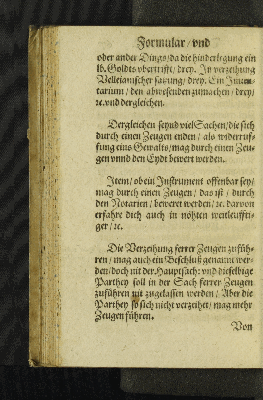 Formular / vnd
oder ander Dings / da die hinderlegung ein
lb. Goldts vbertrifft / drey. In verzeihung
Velleianischer satzung / drey. Ein Inuen-
tarium / den abwesenden zumachen / drey /
ꝛc. vnd dergleichen.
Dergleichen seynd viel Sachen / die sich
durch einen Zeugen enden / als widerruf-
fung eins Gewalts / mag durch einen Zeu-
gen vnnd den Eydt bewert werden.
Item / ob ein Instrument offenbar sey /
mag durch einen Zeugen / das ist / durch
den Notarien / beweret werden / ꝛc. darvon
erfahre dich auch in nöhten weitleufti-
ger / ꝛc.
Die Verzeihung ferrer Zeugen zufüh-
ren / mag auch ein Beschluß genannt wer-
den / doch nit der Hauptsach: vnd dieselbige
Parthey soll in der Sach ferrer Zeugen
zuführen nit zugelassen werden / Aber die
Parthey so sich nicht verzeihet / mag mehr
Zeugen führen.
Von